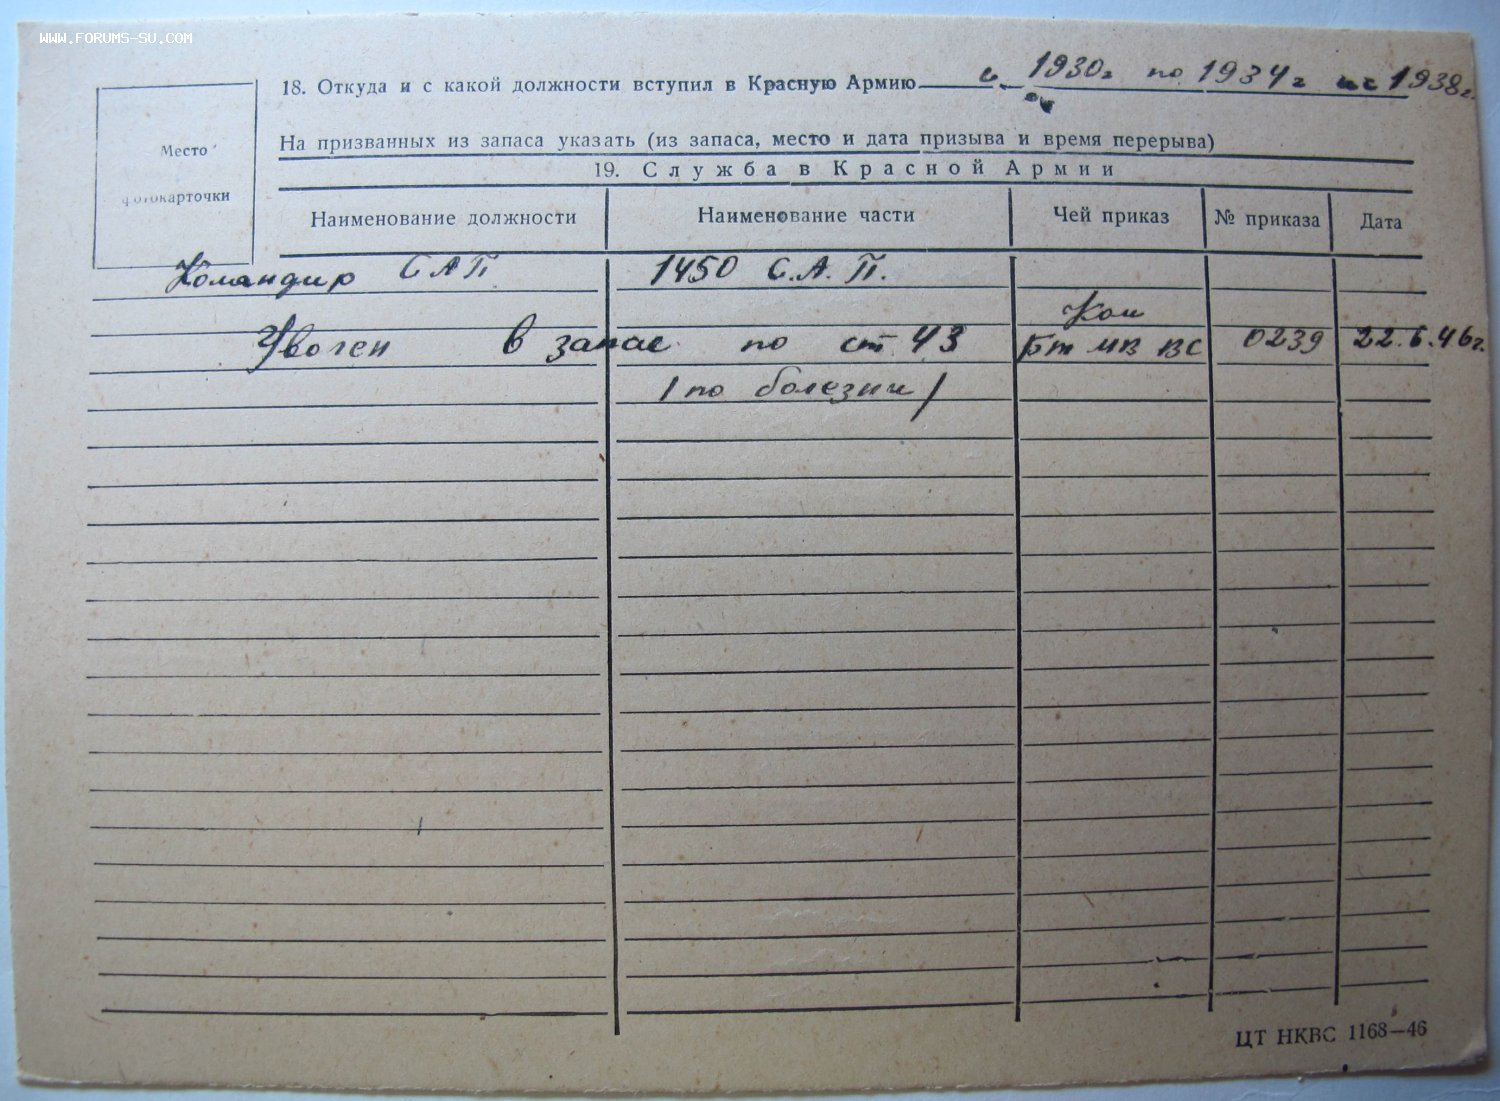 WWW.FORUMS-SU.COM
18. Откуда и с какой должности вступил в Красную Армию с 1930г по 1934г и с 1938г.
Место
фотокарточки
На призванных из запаса указать (из запаса, место и дата призыва и время перерыва)
19. Служба в Красной Армии
Наименование должности Наименование части Чей приказ № приказа Дата
Командир САП 1450 С.А.П.
Ком
Уволен в запас по ст 43 Бт МВ ВС 0239 22.6.46г.
/по болезни/
ЦТ НКВС 1168—46